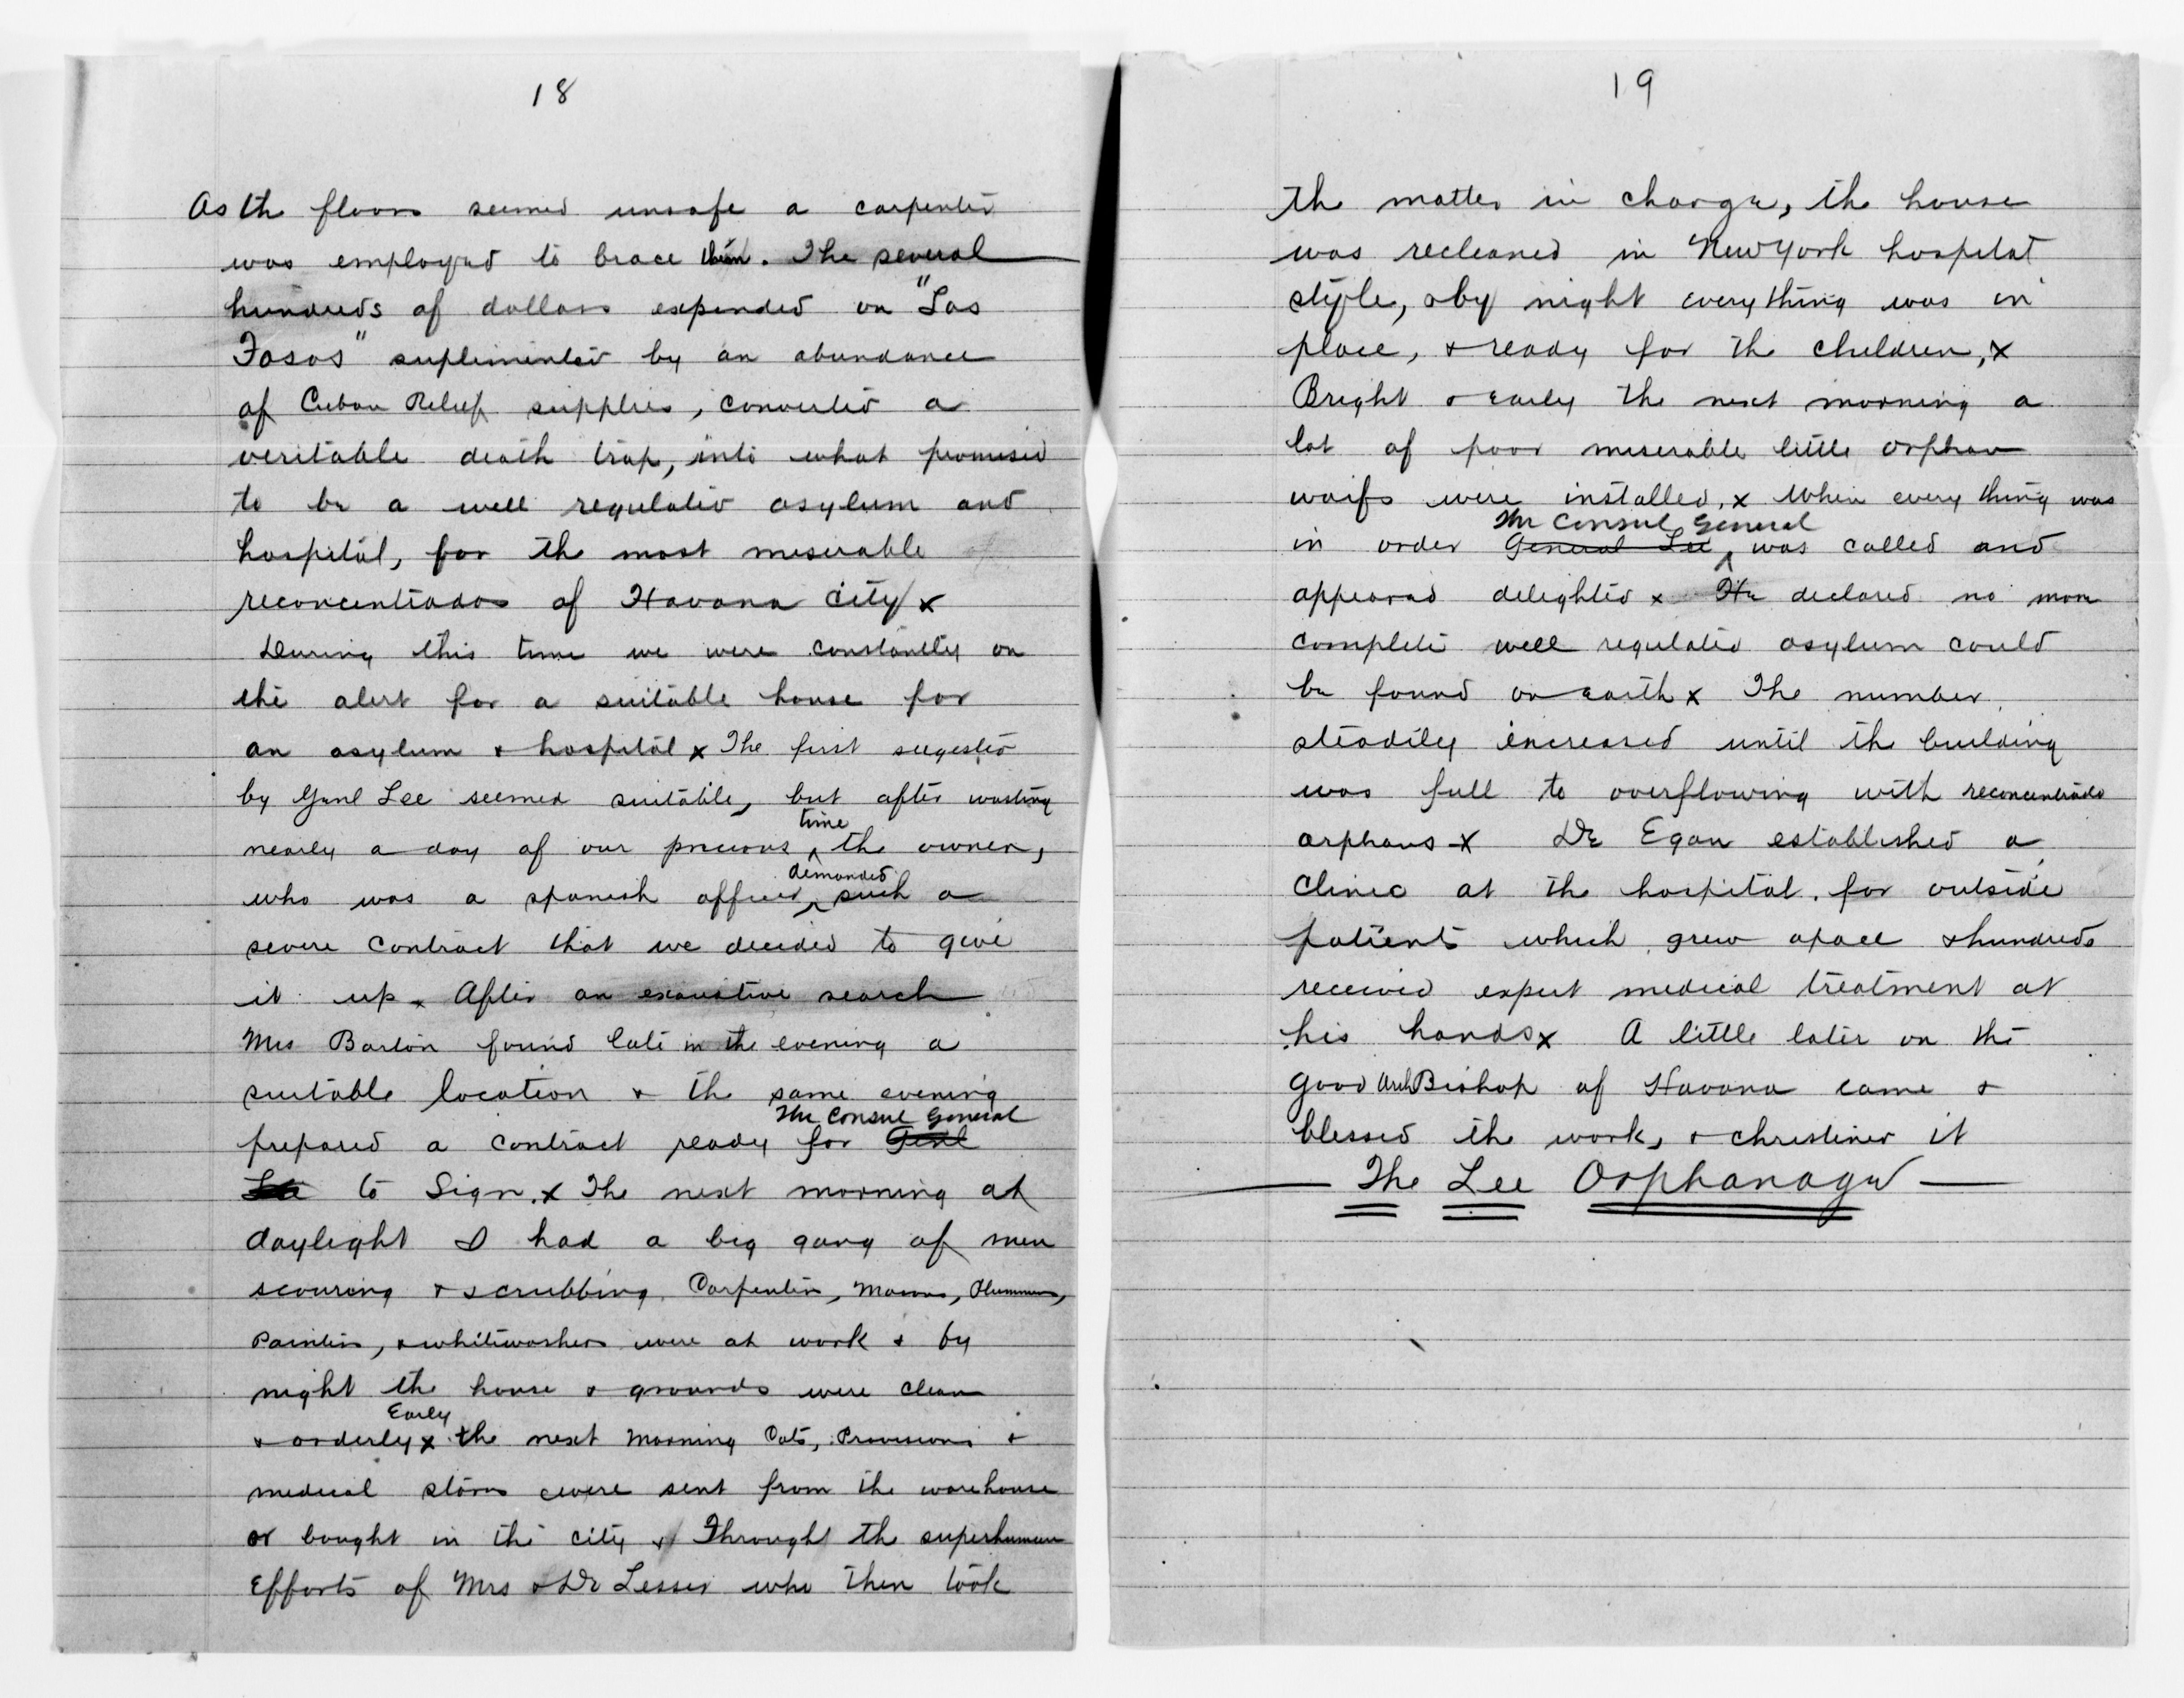 18
As the floors seemed unsafe a carpenter
was employed to brace them. The several
hundreds of dollars expended on "Los
Fosos" suplimented by an abundance
of Cuban Relief supplies, converted a
veritable death trap, into what promised
to be a well regulated asylum and
hospital, for the most miserable
reconcentrados of Havana City x
During this time we were constantly on
the alert for a suitable house for
an asylum & hospital x The first sugested
by Genl Lee seemed suitable, but after wasting
time
nearly a day of our precious ^ the owner,
demanded
who was a spanish officer ^ such a
severe contract that we decided to give
it up x After an exaustive search
Mrs Barton found late in the evening a
suitable location & the same evening
The Consul General
prepared a contract ready for Genl
Lee to Sign. x The next morning at
daylight I had a big gang of men
scouring & scrubbing. Carpenters, Masons, Plummers,
Painters, & whitewashers were at work & by
night the house & grounds were clean
Early
& orderly x the next morning Cots, Provisions &
medical stores were sent from the warehouse
or bought in the city x Through the superhuman
Efforts of Mrs & Dr Lesser who then took
19
the matter in charge, the house
was recleaned in New York hospital
style, & by night every thing was in
place, & ready for the children, x
Bright & early the next morning a
lot of poor miserable little orphan
waifs were installed, x When every thing was
The Consul General
in order General Lee ^ was called and
appeared delighted x He declared no more
complete well regulated asylum could
be found on earth x The number
steadily increased until the building
was full to overflowing with reconcentrado
orphans x Dr Egan established a
Clinic at the hospital. for outside
patients which grew apace & hundreds
received expert medical treatment at
his hands x A little later on the
good Arch Bishop of Havana came &
blessed the work, & christined it
— The Lee Orphanage —